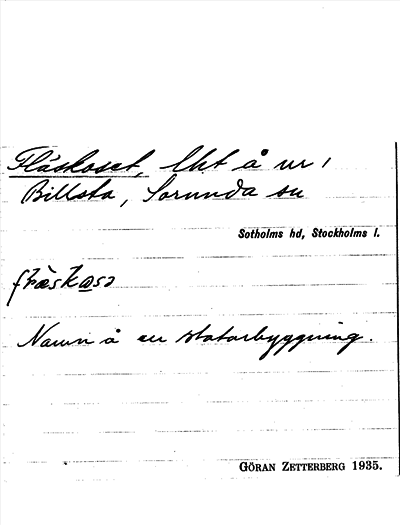 Fläskoset, lht å nr 1
Billsta, Sorunda sn
Sotholms hd, Stockholms l.
Namn å en statarbyggning.
GÖRAN ZETTERBERG 1935.